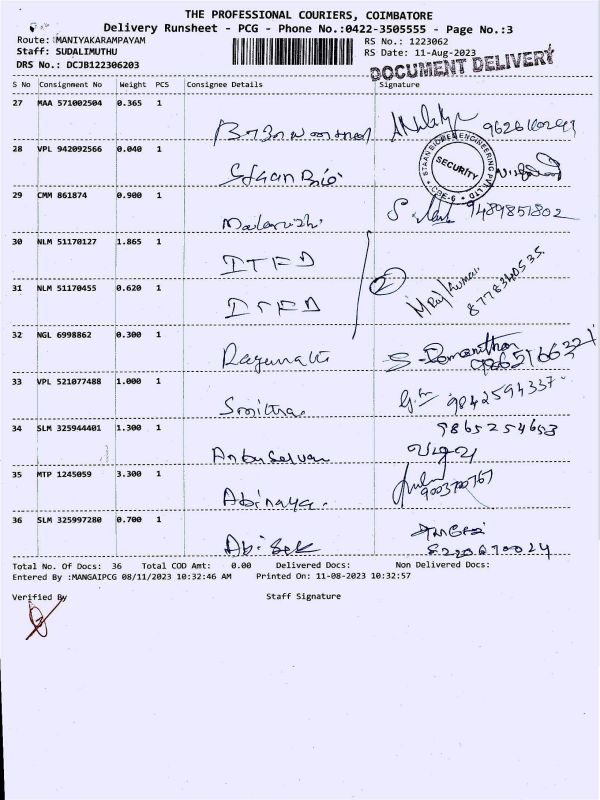 THE PROFESSIONAL COURIERS, COIMBATORE
Delivery Runsheet - PCG - Phone No.:0422-3505555 - Page No.:3
Route: MANIYAKARAMPAYAM RS No.: 1223062
Staff: SUDALIMUTHU RS Date: 11-Aug-2023
DRS No.: DCJB122306203 DOCUMENT DELIVERY
S No Consignment No Weight PCS Consignee Details Signature
27 MAA 571002504 0.365 1
28 VPL 942092566 0.040 1 Staan Bio
STAAN BIOMED ENGINEERING PVT. LTD
SECURITY
CBE-6
29 CMM 861874 0.900 1 9489851802
30 NLM 51170127 1.865 1 ITFD
31 NLM 51170455 0.620 1 ITFD 2 8778340535
32 NGL 6998862 0.300 1 Ragunath
33 VPL 521077488 1.000 1 Smitha 9842594337
34 SLM 325944401 1.300 1 Anbuselvan 9865254653
35 MTP 1245059 3.300 1 Abinaya. 9003700767
36 SLM 325997280 0.700 1 Abisek
Total No. Of Docs: 36 Total COD Amt: 0.00 Delivered Docs: Non Delivered Docs:
Entered By :MANGAIPCG 08/11/2023 10:32:46 AM Printed On: 11-08-2023 10:32:57
Verified By Staff Signature